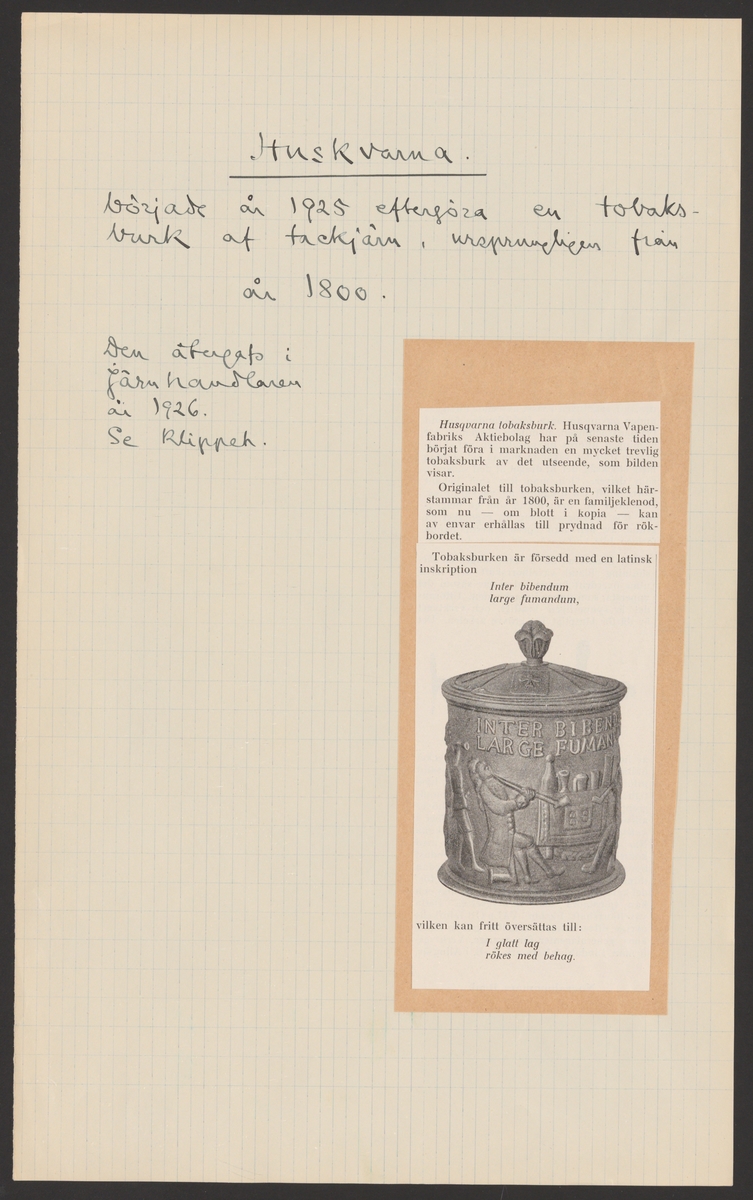 Huskvarna.
började år 1925 eftergöra en tobaks-
burk af tackjärn, ursprungligen från
år 1800.
Den återgafs i
Järnhandlaren
år 1926.
Se Klippet.
Husqvarna tobaksburk. Husqvarna Vapen-
fabriks Aktiebolag har på senaste tiden
börjat föra i marknaden en mycket trevlig
tobaksburk av det utseende, som bilden
visar.
Originalet till tobaksburken, vilket här-
stammar från år 1800, är en familjeklenod,
som nu — om blott i kopia — kan
av envar erhållas till prydnad för rök-
bordet.
Tobaksburken är försedd med en latinsk
inskription
Inter bibendum
large fumandum,
INTER BIBEN
LARGE FUMAN
vilken kan fritt översättas till:
I glatt lag
rökes med behag.